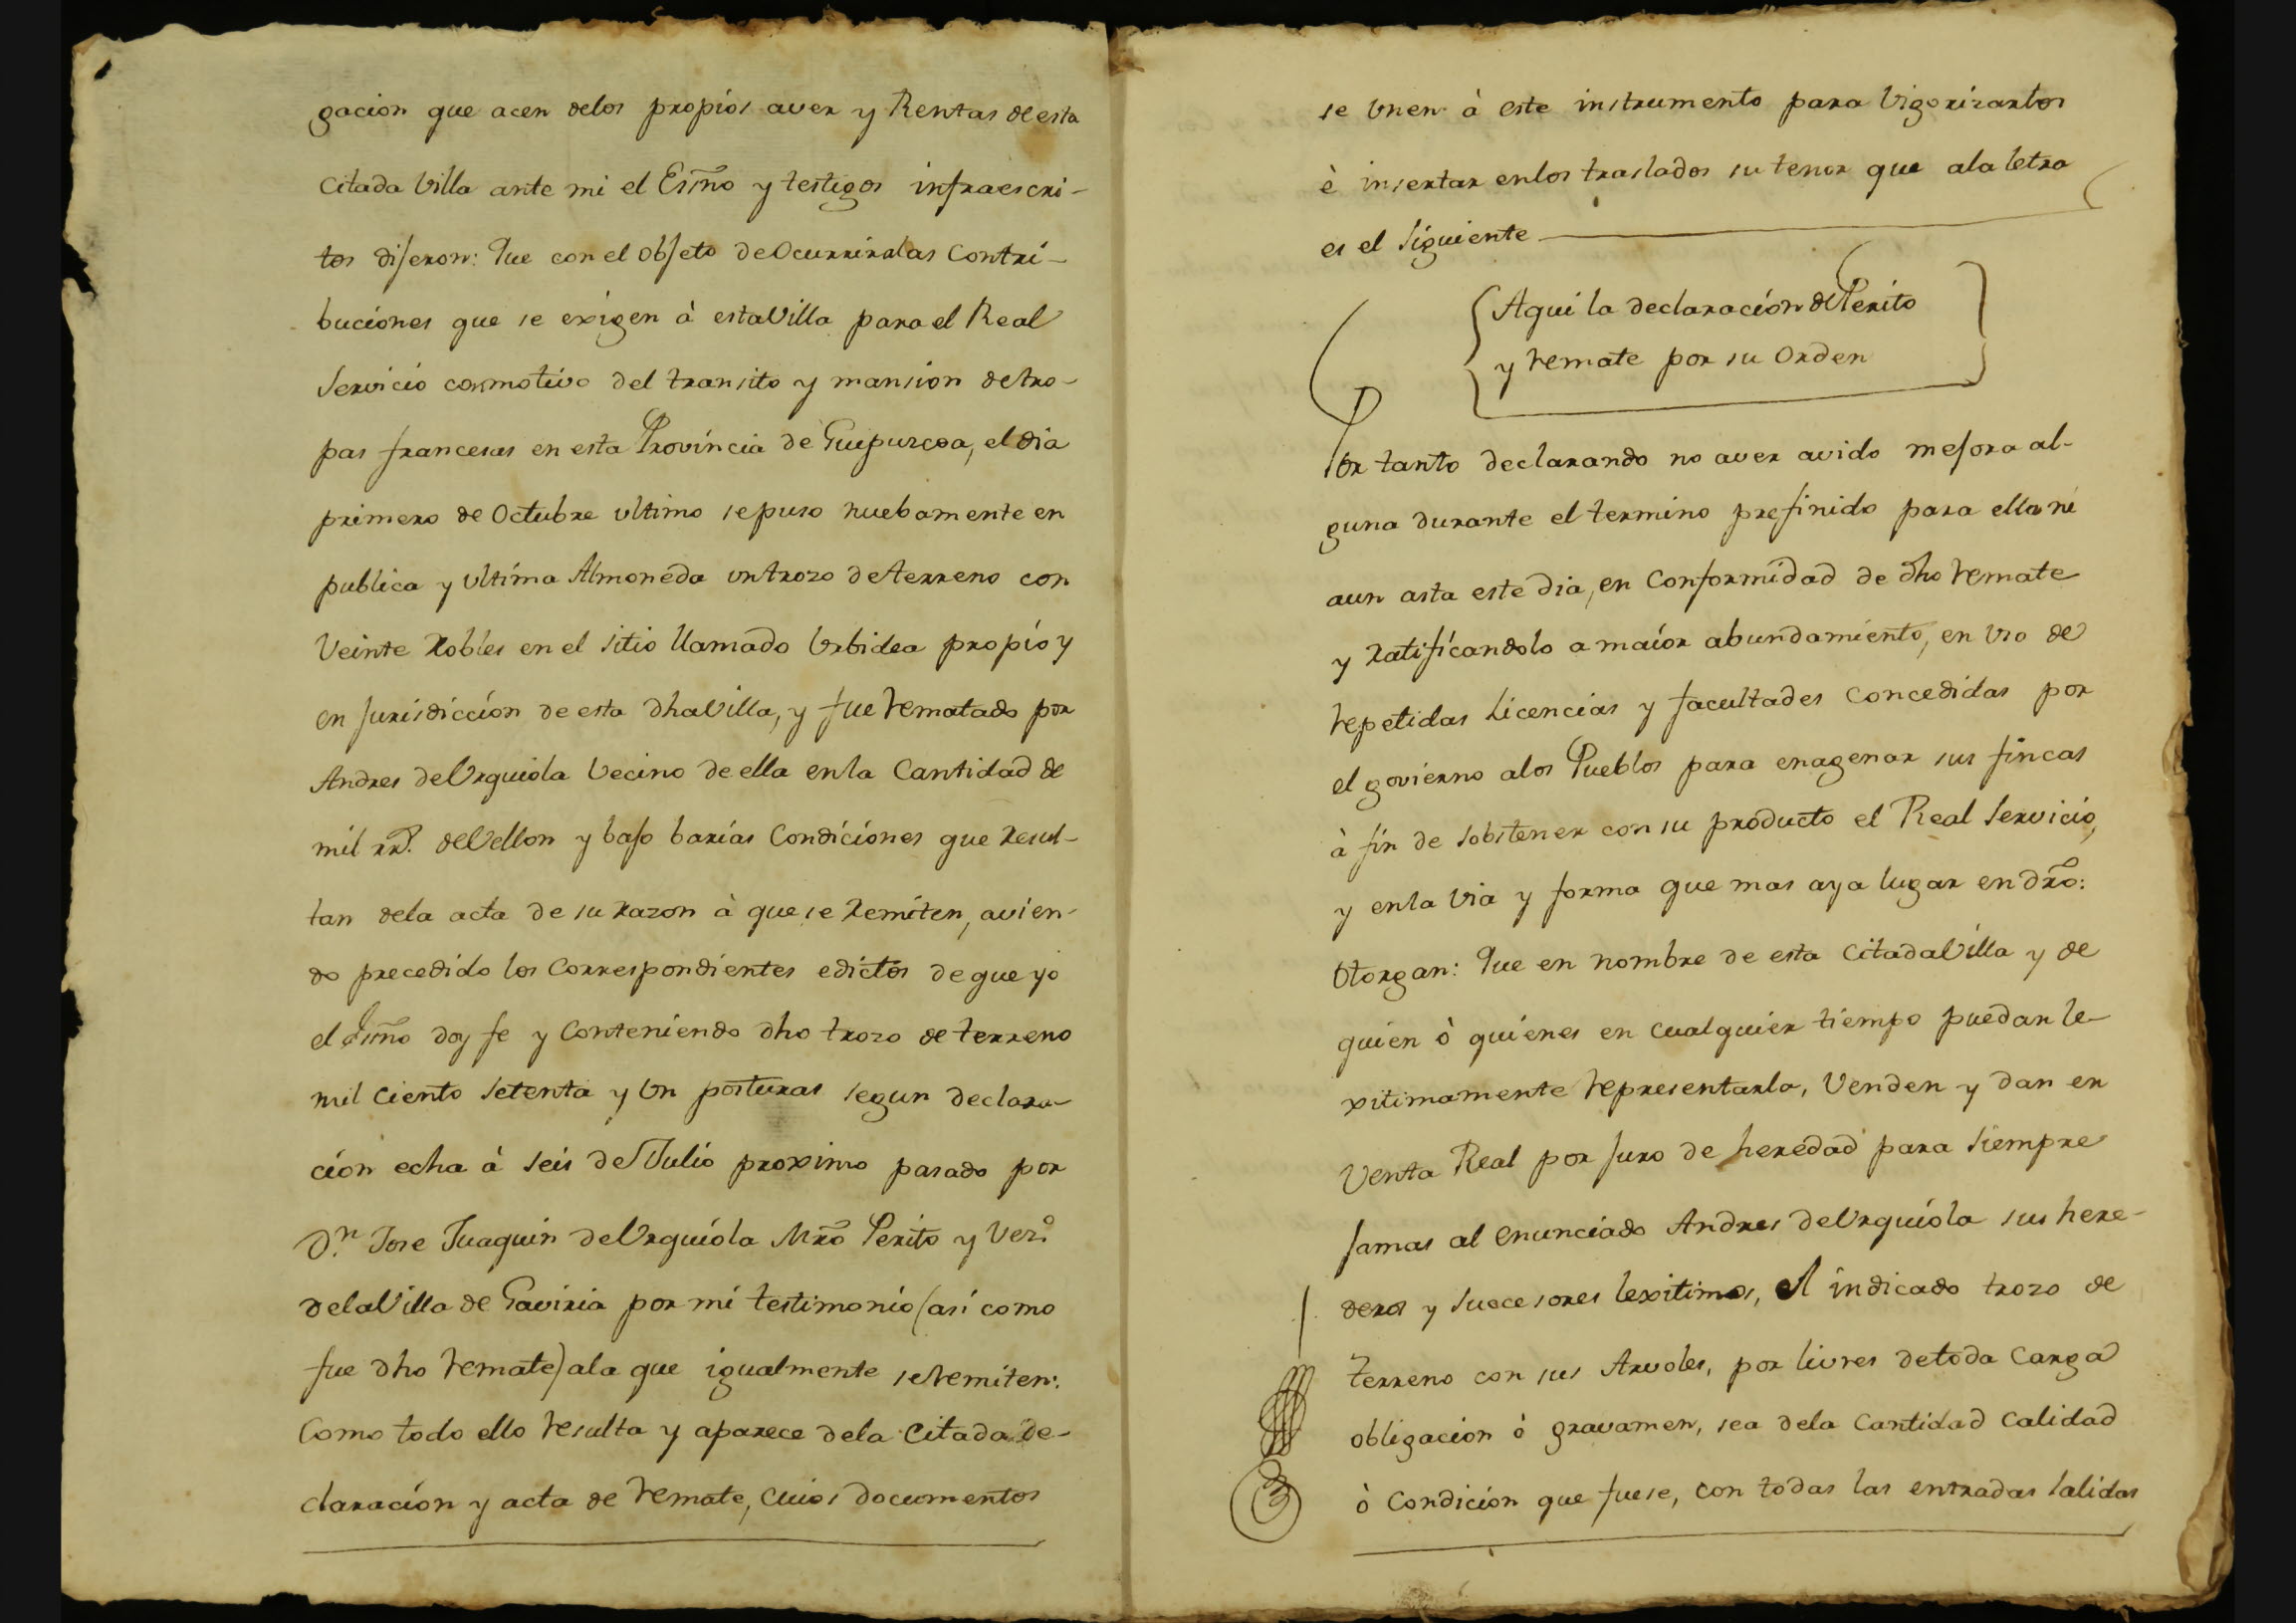 gacion que acen delos propios aver y Rentas de esta
citada Villa ante mi el Essño y testigos infraescri-
tos dijeron: Que con el objeto de Ocurrir alas Contri-
buciones que se exigen à esta Villa para el Real
Servicio con motivo del transito y mansion de tro-
pas francesas en esta Provincia de Guipuzcoa, el dia
primero de Octubre ultimo se puso nuebamente en
publica y ultima Almoneda un trozo de terreno con
Veinte Robles en el sitio llamado Urbidea propio y
en jurisdiccion de esta dha Villa, y fue rematado por
Andres de Urquiola Vecino de ella en la Cantidad de
mil rrs. de Vellon y bajo barias Condiciones que Resul-
tan dela acta de su razon à que se Remiten, avien-
do precedido los Correspondientes edictos de que yo
el Essño doy fe y Conteniendo dho trozo de terreno
mil ciento setenta y Un posturas segun declara-
cion echa à seis de Julio proximo pasado por
Dn. Jose Juaquin de Urquiola Mrõ Perito y Vezº
dela Villa de Gaviria por mi testimonio (asi como
fue dho remate) ala que igualmente se remiten:
Como todo ello resulta y aparece dela Citada De-
claracion y acta de remate, cuios documentos
se Unen à este instrumento para Vigorizarlos
è insertar enlos traslados su tenor que ala letra
es el siguiente
Aqui la declaracion del Perito
y remate por su Orden
Por tanto declarando no aver avido mejora al-
guna durante el termino prefinido para ella ni
aun asta este dia, en Conformidad de dho remate
y Ratificandolo a maior abundamiento, en Uso de
repetidas Licencias y facultades Concedidas por
el govierno alos Pueblos para enagenar sus fincas
à fin de sobstener con su producto el Real Servicio,
y enla Via y forma que mas aya lugar en drõ:
Otorgan: Que en nombre de esta Citada Villa y de
quien ò quienes en cualquier tiempo puedan le-
xitimamente representarla, Venden y dan en
Venta Real por juro de heredad para siempre
jamas al enunciado Andres de Urquiola sus here-
deros y succesores lexitimos, el indicado trozo de
terreno con sus Arvoles, por livres de toda Carga
obligacion ò gravamen, sea dela Cantidad Calidad
ò Condicion que fuese, con todas las entradas salidas